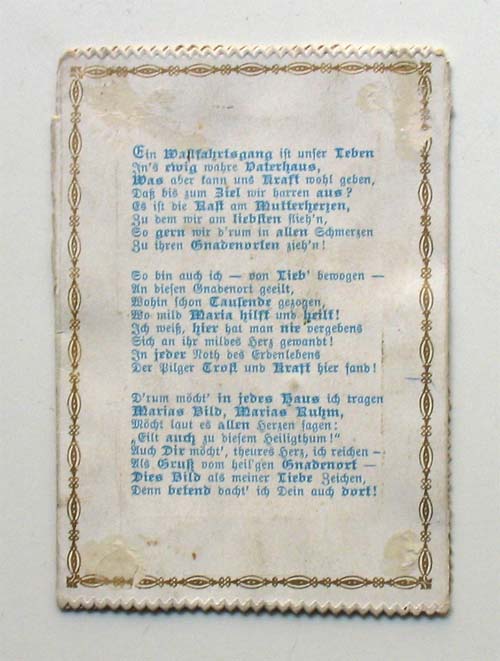 Ein Wallfahrtsgang ist unser Leben
In's ewig wahre Vaterhaus,
Was aber kann uns Kraft wohl geben,
Daß bis zum Ziel wir harren aus?
Es ist die Rast am Mutterherzen,
Zu dem wir am liebsten flieh'n,
So gern wir d'rum in allen Schmerzen
Zu ihren Gnadenorten zieh'n!
So bin auch ich — von Lieb' bewogen —
An diesen Gnadenort geeilt,
Wohin schon Tausende gezogen,
Wo mild Maria hilft und heilt!
Ich weiß, hier hat man nie vergebens
Sich an ihr mildes Herz gewandt!
In jeder Noth des Erdenlebens
Der Pilger Trost und Kraft hier fand!
D'rum möcht' in jedes Haus ich tragen
Marias Bild, Marias Ruhm,
Möcht laut es allen Herzen sagen:
„Eilt auch zu diesem Heiligthum!"
Auch Dir möcht', theures Herz, ich reichen —
Als Gruß vom heil'gen Gnadenort —
Dies Bild als meiner Liebe Zeichen,
Denn betend dacht' ich Dein auch dort!